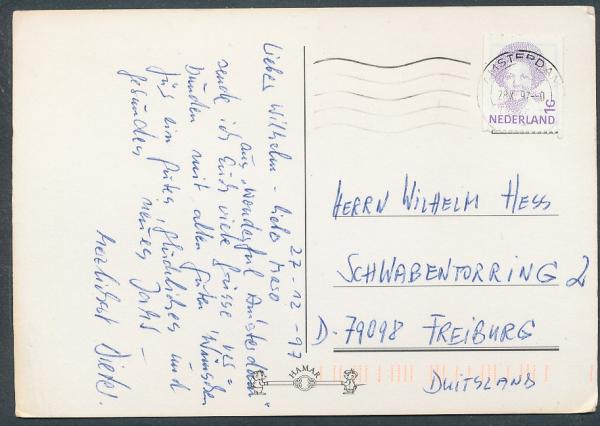 27-12-97
Lieber Wilhelm - liebe
aus „Wonderful Amsterdam“
sende ich Euch viele Grüsse ver=
bunden mit allen guten Wünschen
für ein gutes, glückliches und
gesundes neues Jahr -
herzlichst
AMSTERDAM
NEDERLAND
HERRN WILHELM HESS
SCHWABENTORRING 2
D-79098 FREIBURG
DUITSLAND
HAMAR